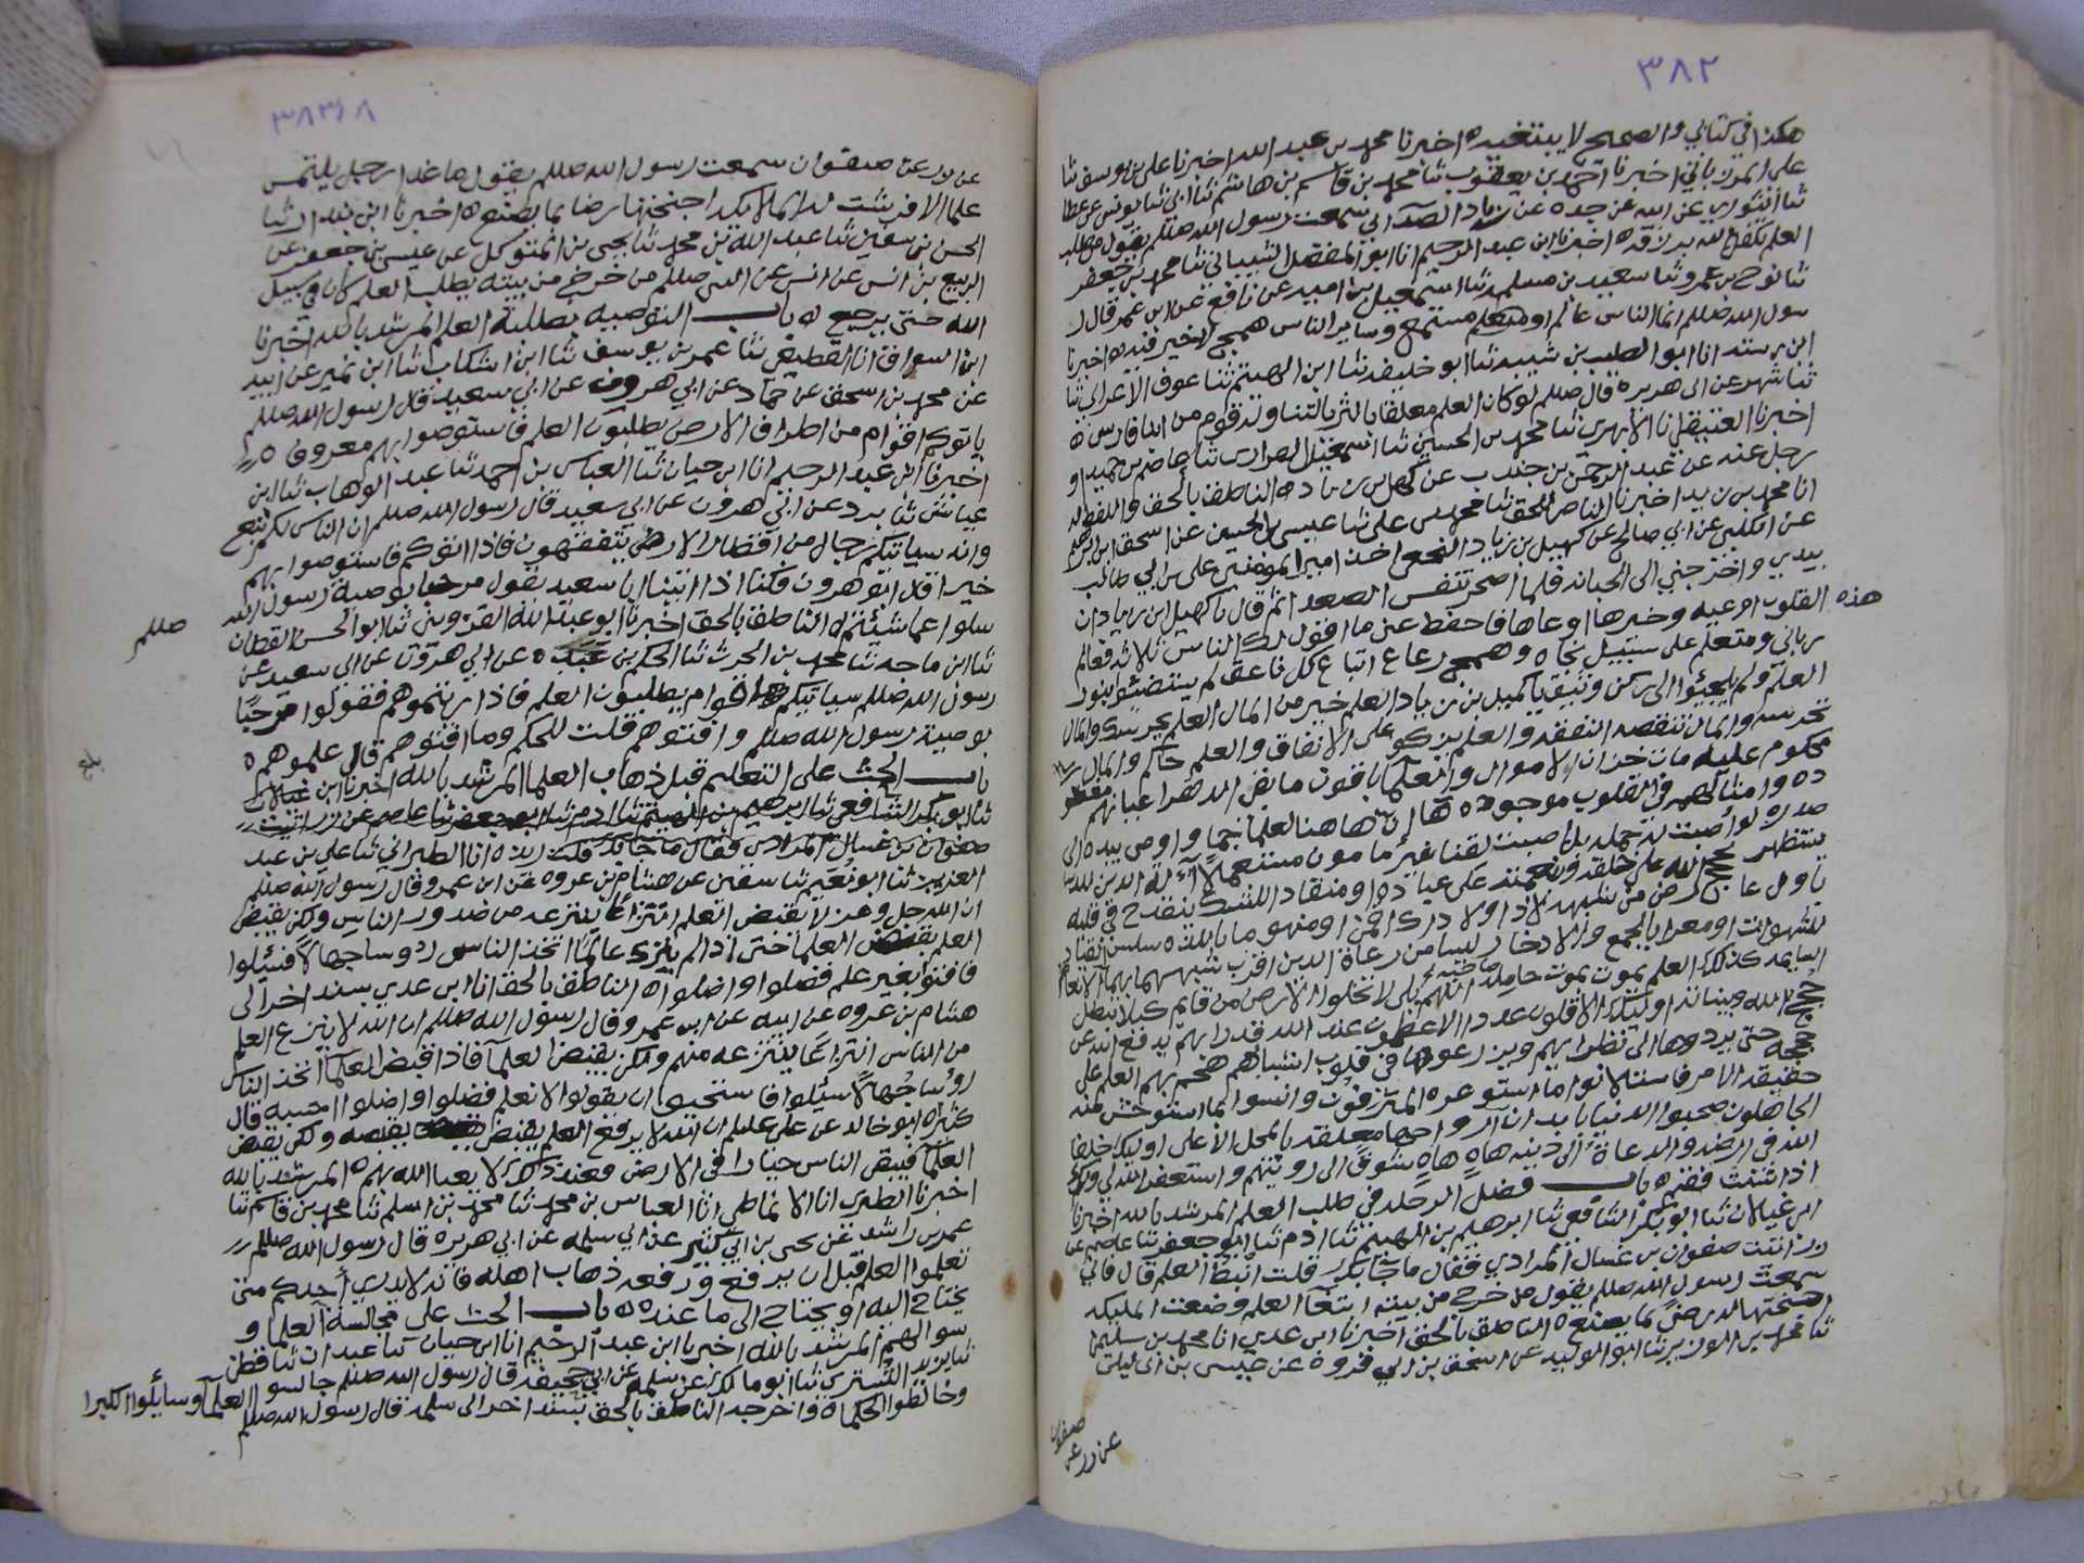 ٣٨٢
هكذا في كتابي والصحيح لا يبتغيه ه اخبرنا محمد بن عبد الله اخبرنا علي بن يوسف ثنا
علي المرزباني اخبرنا احمد بن يعقوب ثنا محمد بن قاسم بن هاشم ثنا ابي ثنا يونس عن عطا
ثنا الثوري عن ابيه عن جده عن زياد الصدائي سمعت رسول الله صللم يقول من طلب
العلم تكفل الله برزقه ه اخبرنا ابن عبد الرحيم انا ابو المفضل الشيباني ثنا محمد بن جعفر
ثنا نوح بن عمرو ثنا سعيد بن مسلمه ثنا اسمعيل بن اميه عن نافع عن ابن عمر قال ر
سول الله صللم انما الناس عالم او متعلم مستمع وساير الناس همج لا خير فيه ه اخبرنا
ابن رسته انا ابو الطيب بن شبيب ثنا ابو خليفه ثنا ابن الهيثم ثنا عوف الاعرابي ثنا
ثنا شهر عن ابي هريره قال صللم لو كان العلم معلقا بالثريا لتناوله قوم من ابنا فارس ه
اخبرنا العتيقي انا الابهري ثنا محمد بن الحسين ثنا اسمعيل ثنا عاصم بن حميد او
رجل عنه عن عبد الرحمن بن جندب عن كهيل بن زياد ه الناطق بالحق واللفظ له
انا محمد بن زيد اخبرنا الناصر للحق ثنا محمد بن علي ثنا عيسى بن الحسين عن اسحق ابن ابرهيم
عن الكلبي عن ابي صالح عن كهيل بن زياد النخعي اخذ امير المومنين علي بن ابي طالب
بيدي واخرجني الى الجبانه فلما اصحر تنفس الصعدا ثم قال يا كهيل ابن زياد ان
هذه القلوب اوعيه وخيرها اوعاها فاحفظ عني ما اقول لك الناس ثلاثه فعالم
رباني ومتعلم على سبيل نجاه وهمج رعاع اتباع كل ناعق لم يستضيئوا بنور
العلم ولم يلجئوا الى ركن وثيق يا كميل بن زياد العلم خير من المال العلم يحرسك والمال
تحرسه والمال تنقصه النفقه والعلم يزكو على الانفاق والعلم حاكم والمال
محكوم عليه مات خزان الاموال والعلما باقون ما بقي الدهر اعيانهم مفقو
ده وامثالهم في القلوب موجوده ها ان هاهنا لعلما جما واومى بيده الى
صدره لو اصبت له حمله بلى اصبت لقنا غير مامون مستعملا آلة الدين للدنيا
يستظهر بحجج الله على خلقه وبنعمته على عباده او منقاد للشك ينقدح في قلبه
باول عارض من شبهه لا ذا ولا ذاك او منهوما باللذه سلس القياد
للشهوات او مغرا بالجمع والادخار ليسا من رعاة الدين اقرب شبها بهما الانعام
السايمه كذلك العلم يموت بموت حامليه اللهم بلى لا تخلوا الارض من قايم كيلا تبطل
حجج الله وبيناته اوليك الاقلون عددا الاعظمون عند الله قدرا بهم يدفع الله عن
حججه حتى يردوها الى نظرايهم ويزرعوها في قلوب اشباههم هجم بهم العلم على
حقيقه الامر فاستلانوا ما استوعره المترفون وانسوا بما استوحش منه
الجاهلون صحبوا الدنيا بابدان ارواحها معلقه بالمحل الاعلى اوليك خلفا
الله في ارضه والدعاة الى دينه هاه هاه شوقا الى رويتهم واستغفر الله لي ولك
اذا شئت فقم ه باب فضل الرحله في طلب العلم المرشد بالله اخبرنا
ابن غيلان ثنا ابو بكر الشافعي ثنا ابرهيم بن الهيثم ثنا ادم ثنا ابو جعفر ثنا عاصم عن
زر اتيت صفوان بن عسال المرادي فقال ما جا بك قلت انبط العلم قال فاني
سمعت رسول الله صللم يقول من خرج من بيته ابتغا العلم وضعت المليكه
اجنحتها له رضى بما يصنع ه الناطق بالحق اخبرنا ابن عدي انا محمد بن سليمان
ثنا محمد بن الوزير ثنا ابو الوليد عن اسحق بن ابي فروة عن عيسى بن
عن زر عن
صفوان
٣٨٣
عن زر عن صفوان سمعت رسول الله صللم يقول ما غدا رجل يلتمس
علما الا فرشت له الملايكه اجنحتها رضا بما يصنع ه اخبرنا ابن ثنا
الحسن بن سفين ثنا عبد الله بن محمد ثنا يحيى بن المتوكل عن عيسى بن جعفر عن
الربيع بن انس عن انس عن النبي صللم من خرج من بيته يطلب العلم كان في سبيل
الله حتى يرجع ه باب التوصيه بطلبة العلم المرشد بالله اخبرنا
ابن السواق انا القطيعي ثنا عمر بن يوسف ثنا ابن اشكاب ثنا ابن نمير عن ابيه
عن محمد بن اسحق عن حماد عن ابي هرون عن ابي سعيد قال رسول الله صللم
ياتوكم اقوام من اطراف الارض يطلبون العلم فاستوصوا بهم معروفا ه
اخبرنا ابن عبد الرحيم انا ابن حيان ثنا العباس بن احمد ثنا عبد الوهاب ثنا ابن
عياش ثنا برد عن ابي هرون عن ابي سعيد قال رسول الله صللم ان الناس لكم تبع
وانه سياتيكم رجال من اقطار الارض يتفقهون فاذا اتوكم فاستوصوا بهم
خيرا قال ابو هرون فكنا اذا اتينا ابا سعيد يقول مرحبا بوصية رسول الله صللم
سلوا عما شئتم ه الناطق بالحق اخبرنا ابو عبد الله القزويني ثنا ابو الحسن القطان
ثنا ابن ماجه ثنا محمد بن الحرث ثنا الحكم بن عبده عن ابي هرون عن ابي سعيد عن
رسول الله صللم سياتيكم اقوام يطلبون العلم فاذا رايتموهم فقولوا مرحبا
بوصية رسول الله صللم وافتوهم قلت للحكم وما افتوهم قال علموهم ه
بلغ
باب الحث على التعليم قبل ذهاب العلما المرشد بالله اخبرنا ابن غيلان
ثنا ابو بكر الشافعي ثنا ابرهيم بن الهيثم ثنا ادم ثنا ابو جعفر ثنا عاصم عن زر اتيت
صفوان بن عسال المرادي فقال ما جا بك قلت ه انا الطبراني ثنا علي بن عبد
العزيز ثنا ابو نعيم ثنا سفين عن هشام بن عروه عن ابن عمرو قال رسول الله صللم
ان الله جل وعز لا يقبض العلم انتزاعا ينتزعه من صدور الناس ولكن يقبض
العلم بقبض العلما حتى اذا لم يترك عالما اتخذ الناس روسا جهالا فسئلوا
فافتوا بغير علم فضلوا واضلوا ه الناطق بالحق انا ابن عدي بسند اخر الى
هشام بن عروه عن ابيه عن ابن عمرو قال رسول الله صللم ان الله لا ينزع العلم
من الناس انتزاعا ينتزعه منهم ولكن يقبض العلما فاذا قبض العلما اتخذ الناس
رؤسا جهالا سئلوا فاستحيوا ان يقولوا لا نعلم فضلوا واضلوا احسبه قال
كثيرا ه ابو خالد عن علي عليلم ان الله لا يرفع العلم بقبض يقبضه ولكن يقبض
العلما فيبقى الناس حيارا في الارض فعند ذلك لا يعبا الله بهم ه المرشد بالله
اخبرنا الطبري انا الانماطي انا العباس بن محمد ثنا محمد بن اسلم ثنا محمد بن قاسم ثنا
عمر بن راشد عن يحيى بن ابي كثير عن ابي سلمه عن ابي هريره قال رسول الله صللم
تعلموا العلم قبل ان يرفع ورفعه ذهاب اهله فانه لا يدري احدكم متى
يحتاج اليه او يحتاج الى ما عنده ه باب الحث على مجالسة العلما و
سوالهم المرشد بالله اخبرنا ابن عبد الرحيم انا ابن حيان ثنا عبدان ثنا قطن
ثنا يزيد التستري ثنا ابو مالك عن سلمه عن ابي جحيفه قال رسول الله صللم جالسوا العلما وسائلوا الكبرا
وخالطوا الحكما ه واخرجه الناطق بالحق بسند اخر الى سلمه قال رسول الله صللم